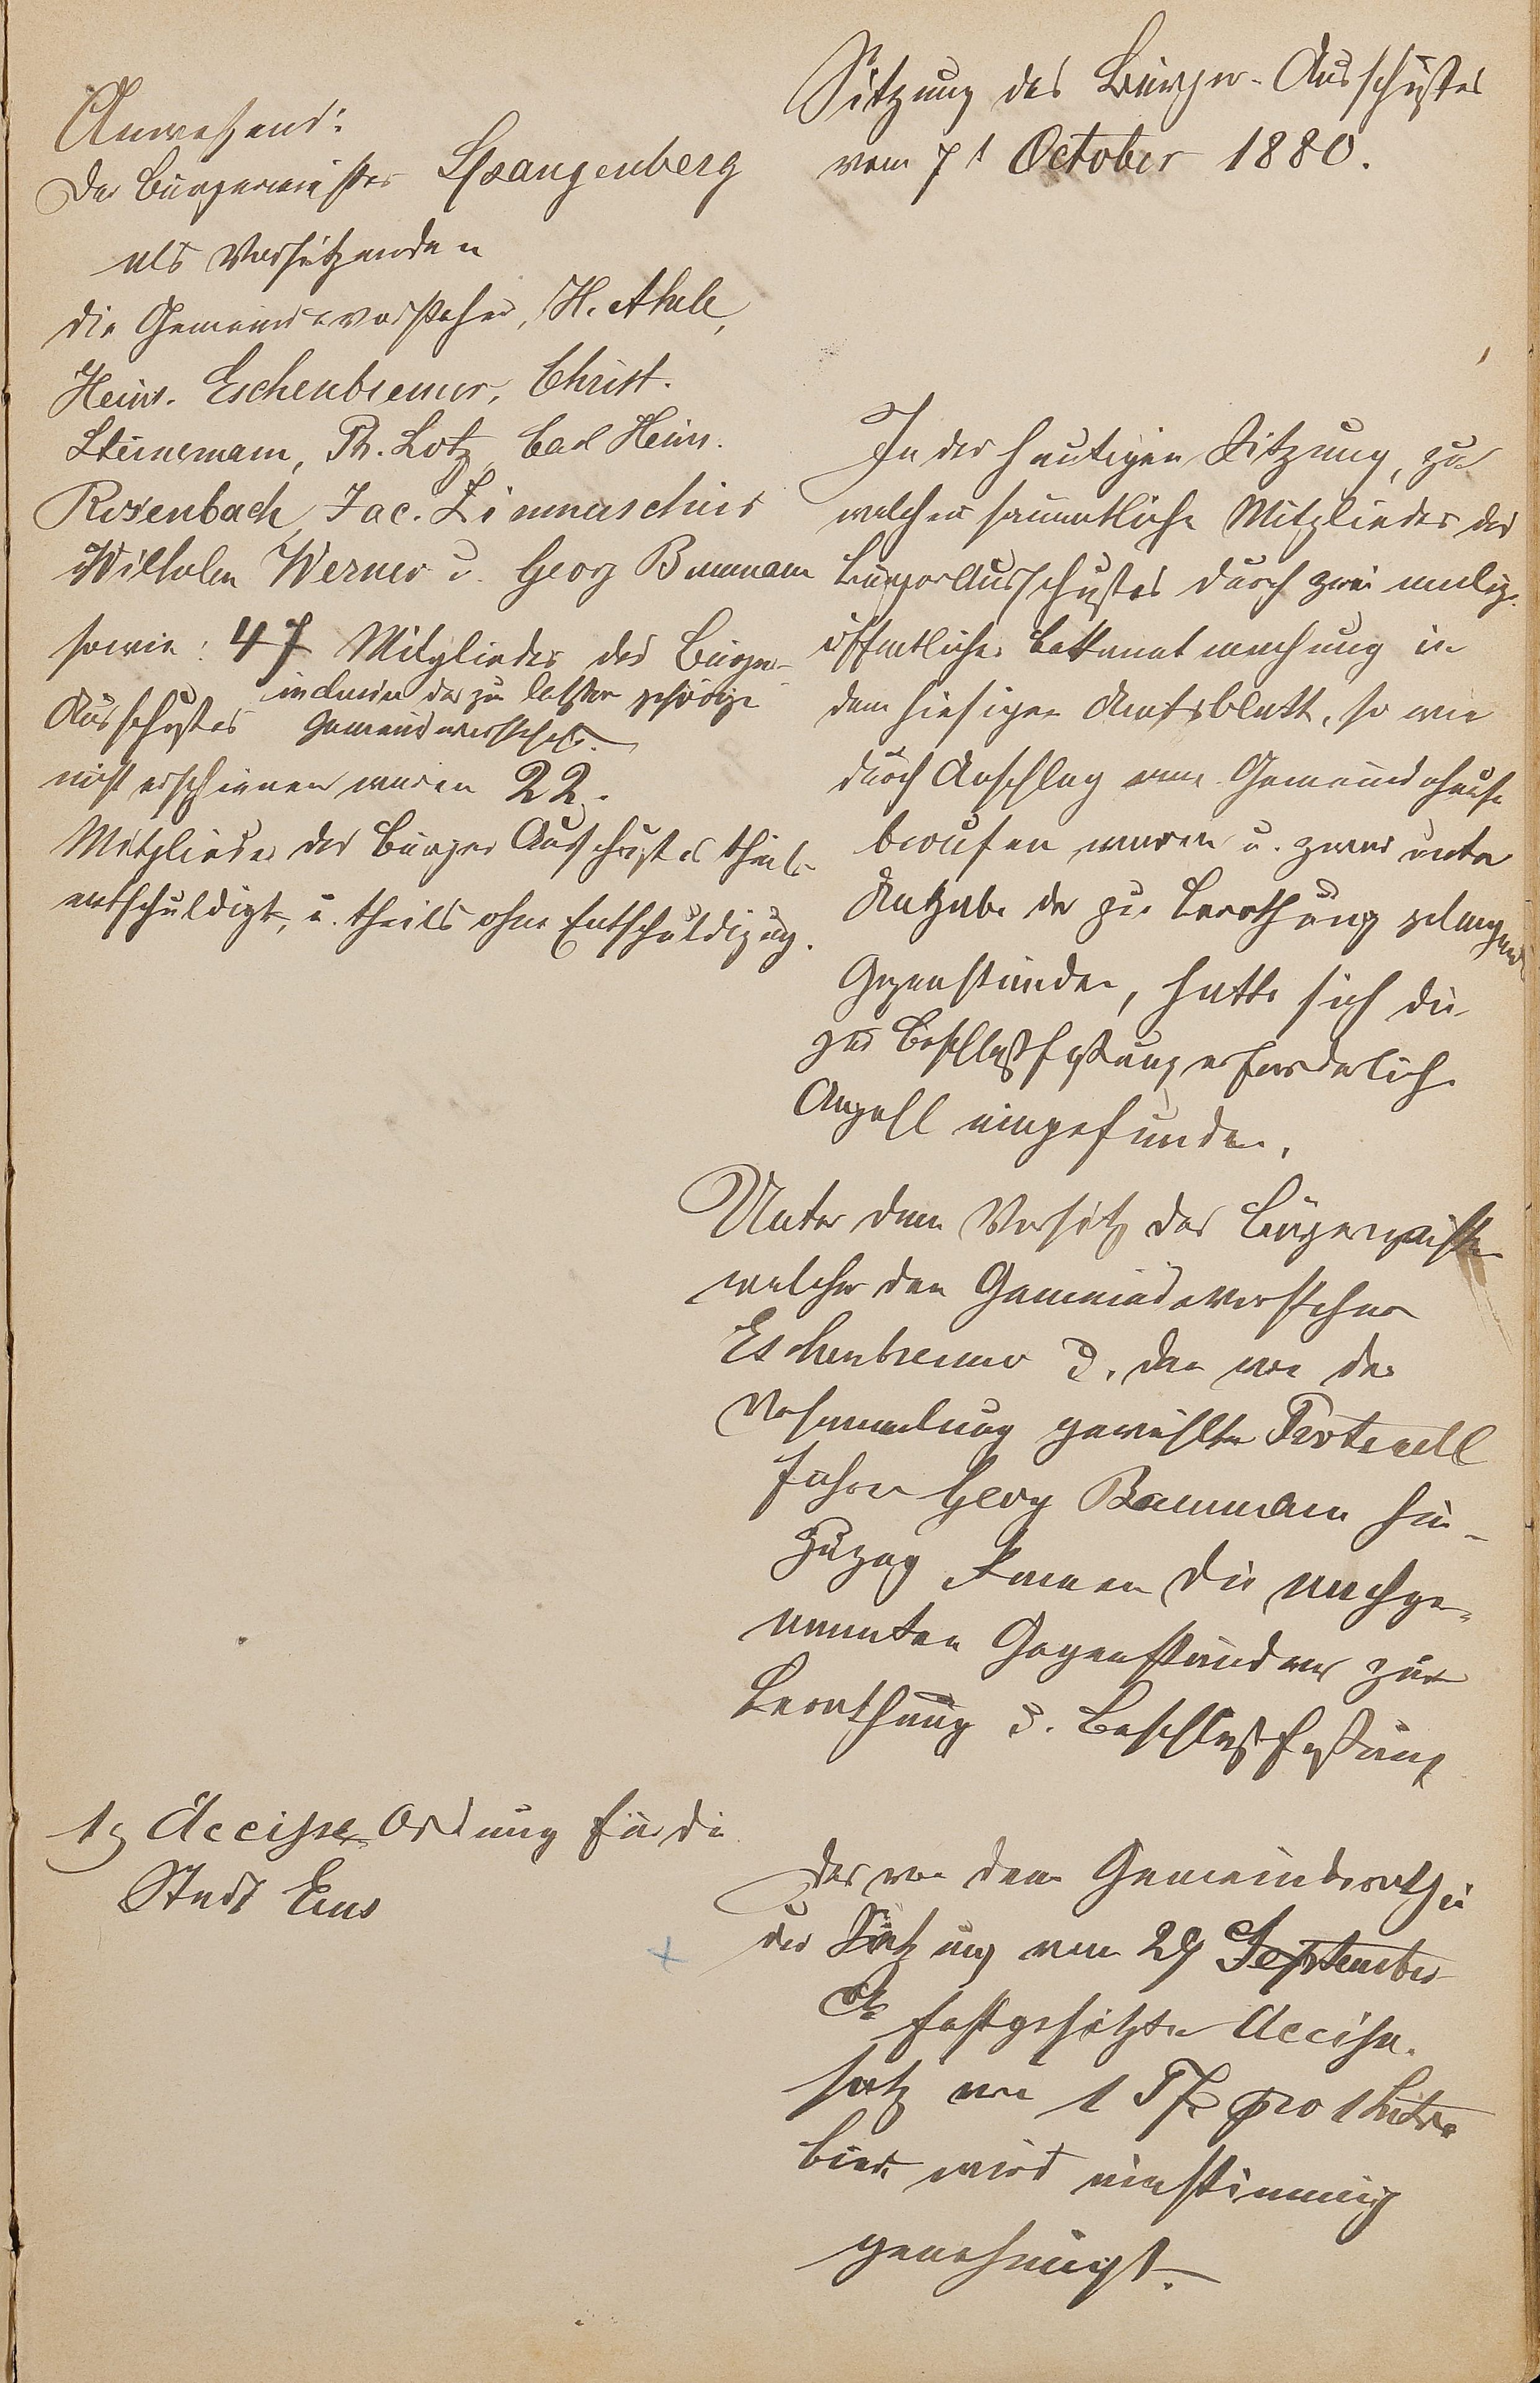 Sitzung des Bürger-Ausschußes
vom 7t October 1880.
Anwesend:
Der Bürgermeister Spangenberg
als Vorsitzenden
die Gemeindevorsteher, H.
Heinr. Eschenbrenner, Christ.
Ph. Lotz, Carl Heinr.
Rosenbach, Jac.
Wilhelm Werner u. Georg Baumann
sowie: 47 Mitglieder des Bürger-
Ausschußes
inclusive der zu letzter gehörige
Gemeindevorsteher.
nicht erschienen waren 22.
Mitglieder des Bürger Ausschußes theils
entschuldigt, u. theils ohne Entschuldigung.
In der heutigen Sitzung, zu
welcher sämmtliche Mitglieder des
BürgerAusschußes durch zwei malige
öffentliche Bekanntmachung in
dem hiesigen Amtsblatt, so wie
durch Anschlag am Gemeindehause
berufen waren u. zwar unter
Angabe der zur Berathung gelangend
Gegenstände, hatte sich die
zur Beschlußfaßung erforderliche
Anzahl eingefunden.
Unter dem Vorsitz des Bürgermeister
welcher den Gemeindevorsteher
Eschenbrenner u. den von der
Versammlung gewählten Protocoll
führer Georg Baumann hin-
zuzog kamen die nachge-
nannten Gegenstände zur
Berathung u. Beschlußfaßung
1, Accise Ordnung für die
Stadt Ems
Der von dem Gemeinderath in
der Sitzung vom 29 September
festgesetzte Accise-
satz von 1 Pf. pro 1 Litre
Bier wird einstimmig
genehmigt.